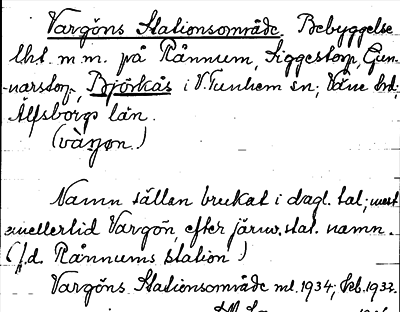 Vargöns Stationsområde Bebyggelse
lht. m m. på Rånnum, Siggestorp, Gun-
narstorp, Björkås i V. Tunhem sn; Väne hd;
Älfsborgs län.
(vàrjon.)
Namn sällan brukat i dagl. tal; mest
emellertid Vargön, efter järnv. stat. namn.
(f.d. Rånnums station)
Vargöns Stationsområde ml. 1934; Eb. 1933.